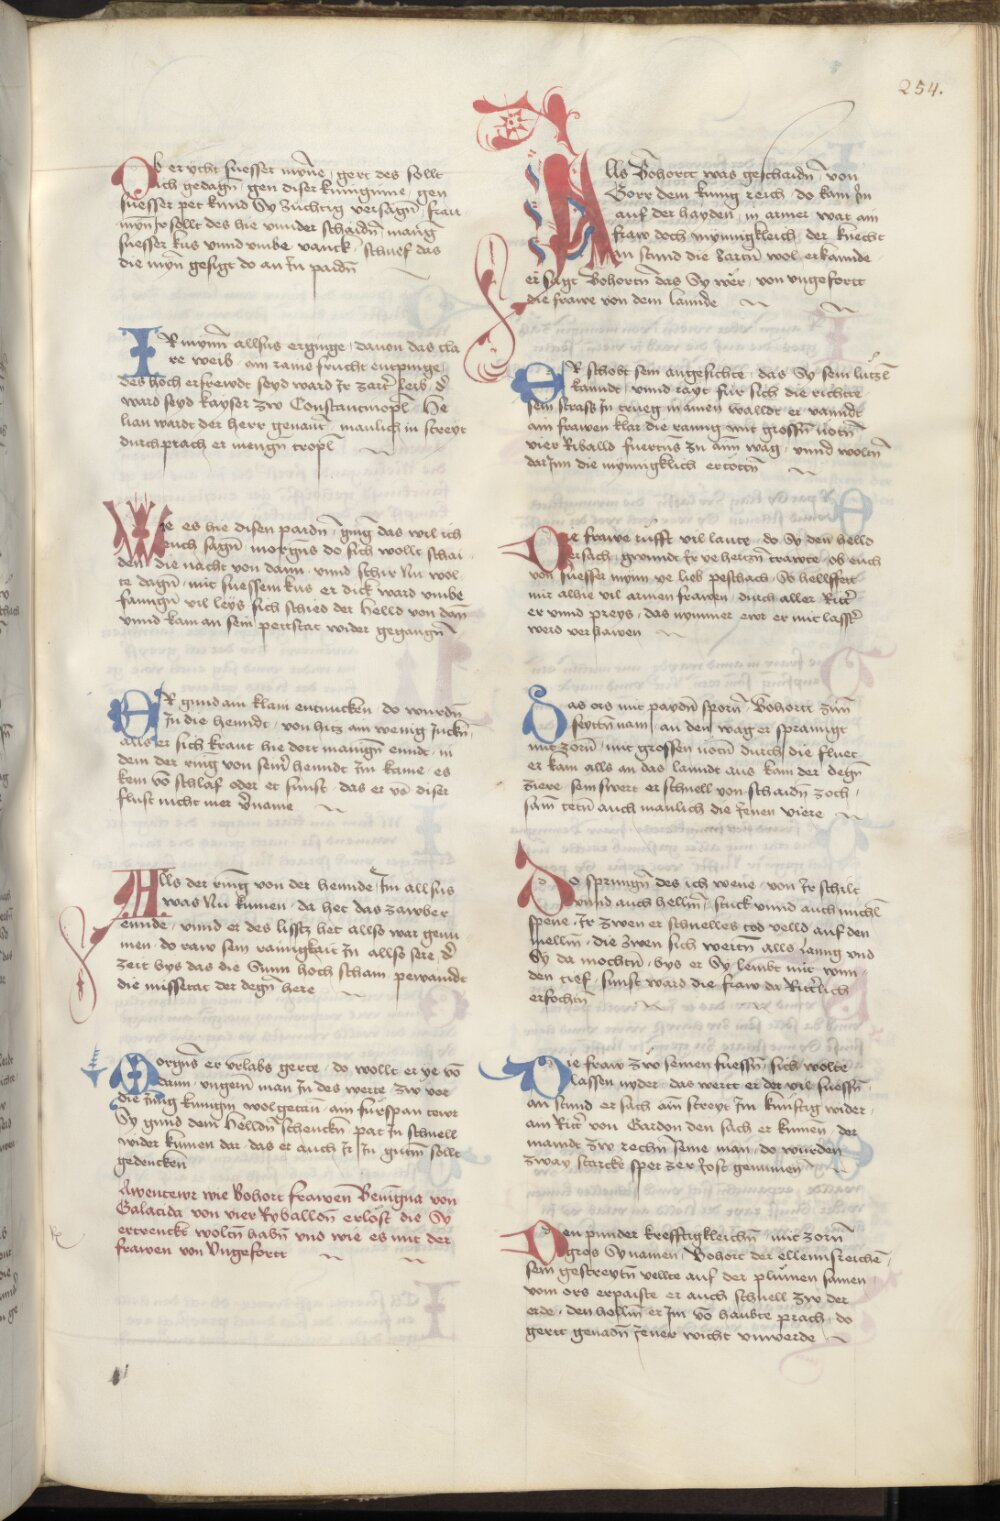 254.
Ob er ycht suesser mynne gert des sollt
ich gedagn gen diser kuniginne gen
suesser pet kund Sy zuchtig versagn frau
mynn Ir sollt des hie wunder schaidn manig
suesser kus vnnd vmbe vanck schuef das
die mynn gesigt do an In paidn
IR mynn allsus erginge dauon das cla
re weib am raine frucht enpfinge
des hoch erfrewdt seyd ward Ir zart leib d
ward seyd kayser zw Constantinopl He
lian wardt der herr genant manlich in streyt
durchprach er mengn tropl
Wie es hie disen paidn ging das wil ich
euch sagn morgns do sich wollt schai
den die nacht von dann vnnd schir Nu wol
te dagn mit suessem kus er dick ward vmbe
fanngn vil leys sich schied der helld von dan
vnnd kam an sein pettstat wider gegangn
ER gund am klain entnucken do wurdn
Im die henndt von hitz am wenig Jucken
alls er sich kraut hie dort manign enndt in
dem der ring von seinr henndt Im kame es
kem vo schlaf oder et sunst das er vo diser
flust nicht mer vername
Alls der ring von der hennde Im allsus
was Nu kumen da het das zawber
ennde vnnd et des lisstz het allso war genu
men do raw sein rainigkait In allso sere d
zeit bys das die Sunn hoch scham pewaindt
die missetat der degn here
Morgns er vrlabs gerte do wollt er ye vo
dann vngern man In des werte zw vor
die Jung kunigin wolgetan am furspan tewr
Sy gund dem helldn schenckn pat In schnell
wider kumen dar das er auch Ir In gutm sollt
gedencken
Awentewr wie Bohort frawen Benigna von
Galacida von vier Ryballdn erlost die Sy
ertrenckt woltn habn vnd wie es mit der
frawen von Vngefortt
Alls Bohortt was geschaidn von
Gorr dem kunig reich do kam Im
auf der hayden in armer wat am
fraw doch mynnigkleich der knecht
an stund die zartn wol erkannde
er sagt Bohortn das Sy wer von vngefortt
die frawe von dem lannde
ER schobt sein angesichte das Sy sein lutzl
kanndt vnnd rayt fur sich die richte
sein strass In trueg in ainen walldt er vanndt
am frawen klar die rannig mit grossn notn
vier Riballd fuertns zu ainn wag vnnd woltn
darInn die mynnigklich ertottn
Die frawe rufft vil laute do Sy den helld
ersach gewindt Ir ye hertzn trawte ob euch
von suesser mynn ye lieb peschach So hellffett
mir alhie vil armen frawen durch aller Ritter
er vnnd preys das nymmer ewr er mit lasster
werd verhawen
Das ors mit paydn sporn Bohortt zum
seyttn nam an den wag er sprannigt
mit zorn mit grossen notn durch die fluet
er kam alls an das lanndt aus kam der degn
ziere sein swert er schnell von schaidn zoch
sam tetn auch manlich die Jenen viere
Do sprungn des ich wene von Ir schilt
vnnd auch hellm stuck vnnd auch michl
spene Ir zwen er schnelles tod velld auf den
mellm die zwen sich wertn alls lanng vnd
Sy da mochtn bys er Sy lembt mit wun
den tief sunst ward die fraw da Ritterlich
erfochtn
Die fraw zw seinen fuessn sich wolte
lassen nyder das wertt er der vil suessn
an stund er sach ain streyt Im kunftig wider
am Ritter von Gardon den sach er kumen der
maindt zw rechn seine man do wurden
zway starcke sper zer Jost genumen
Den punder krefftigkleichn mit zorn
gros Sy namen Bohort der ellennsreichen
sein gestreytn vellte auf der plumen samen
vom ors erpaiste er auch schnell zw der
erde den hellm er Im vo haubte prach do
gertt genadn Jener wicht vnwerde